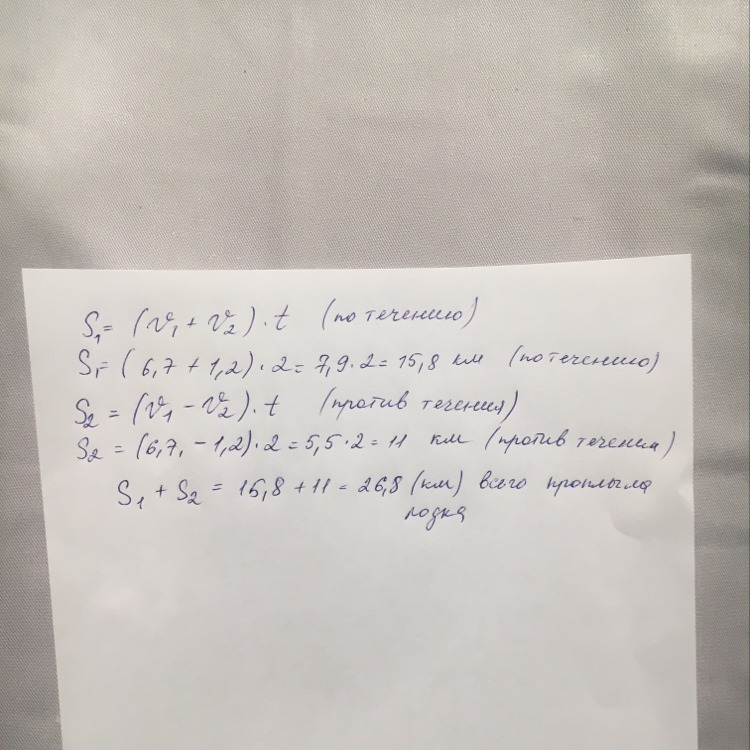 S₁ = (v₁ + v₂) · t (по течению)
S₁ = (6,7 + 1,2) · 2 = 7,9 · 2 = 15,8 км (по течению)
S₂ = (v₁ − v₂) · t (против течения)
S₂ = (6,7, − 1,2) · 2 = 5,5 · 2 = 11 км (против течения)
S₁ + S₂ = 15,8 + 11 = 26,8 (км) всего проплыла
лодка